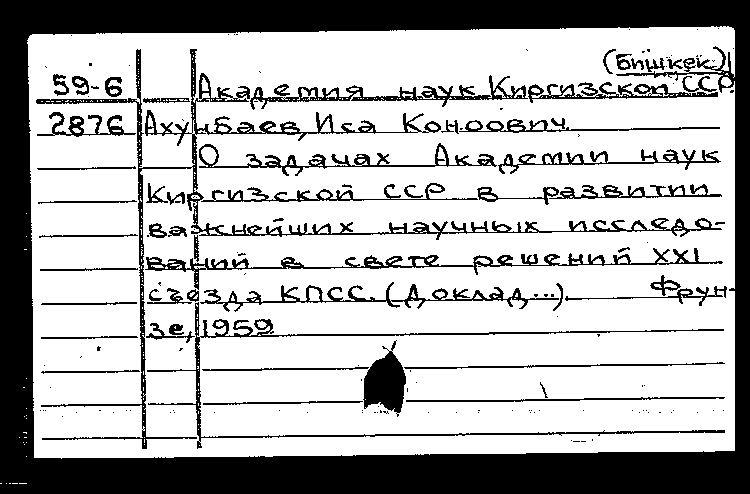 (Бишкек)
59-6 Академия наук Киргизской ССР.
2876 Ахунбаев, Иса Коноович.
О задачах Академии наук
Киргизской ССР в развитии
важнейших научных исследо-
ваний в свете решений XXI
съезда КПСС. (Доклад...). Фрун-
зе, 1959